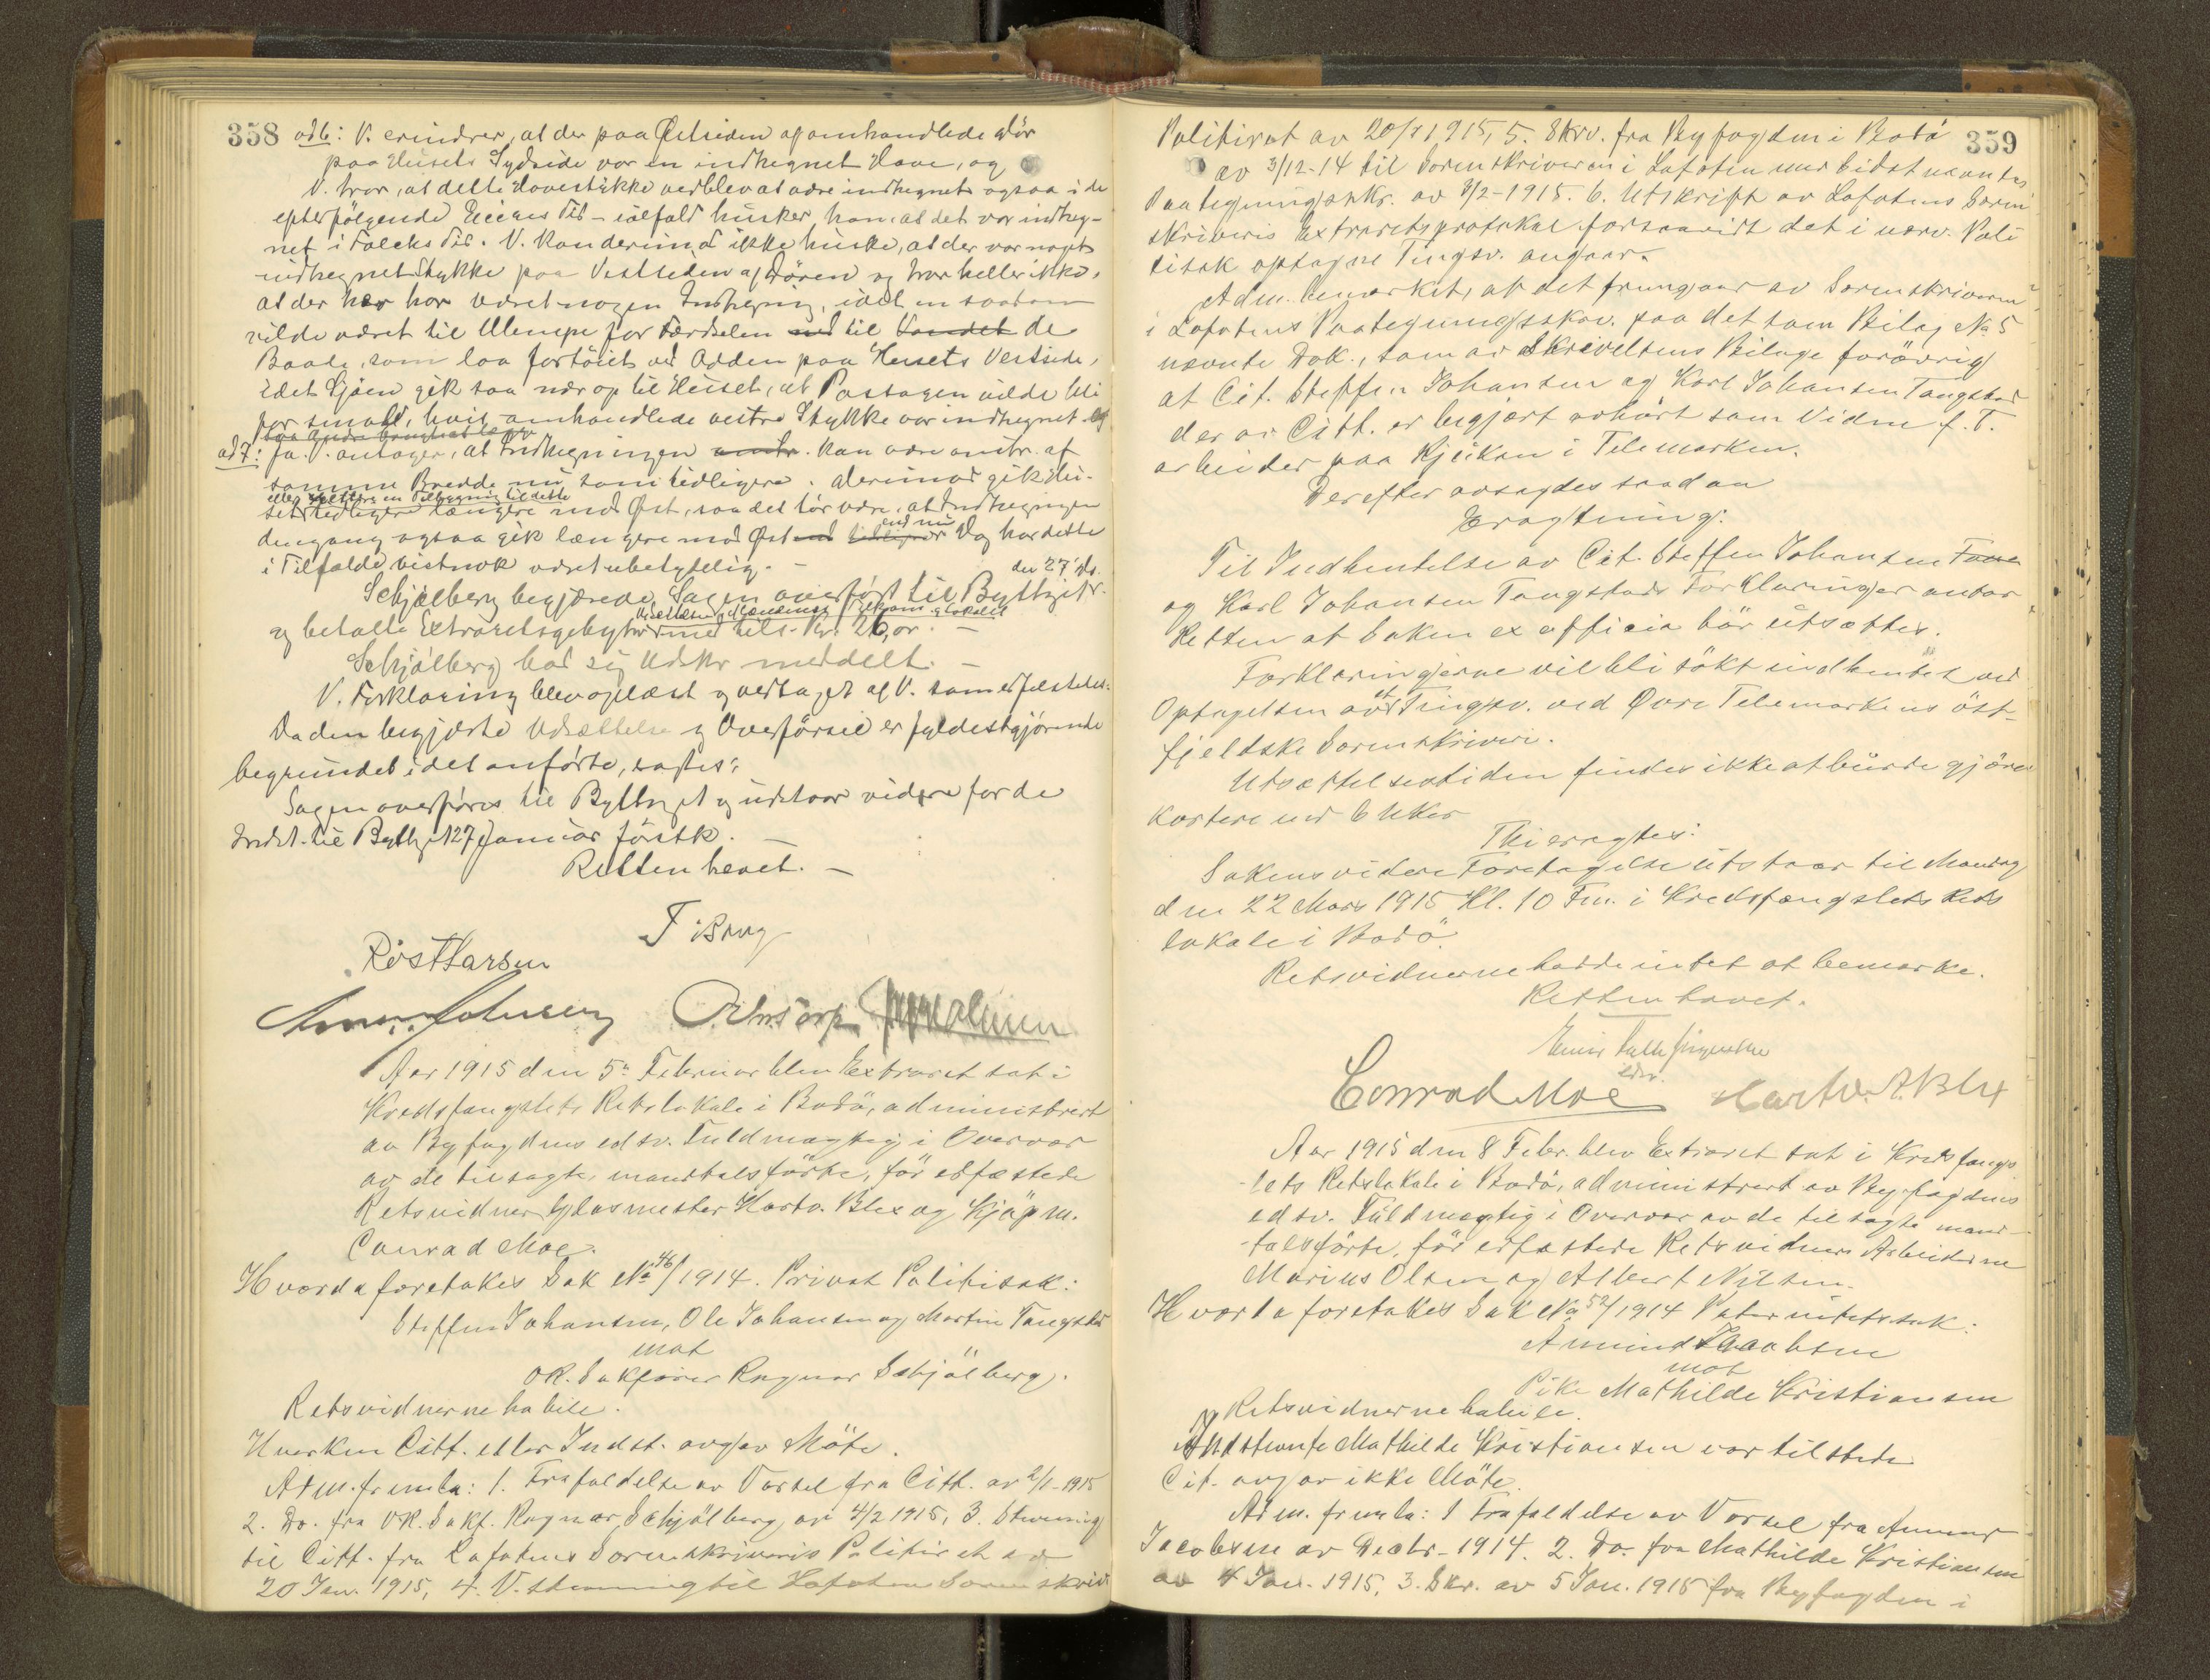 358
ad 6: V. erindrer, at der paa Østsiden af omhandlede Dør
paa Husets Sydside var en indhegnet Have, og
V. tror, at dette Havestykke vedblev at være indhegnet ogsaa i de
efterfølgende Eieres Tid - ialfald husker han, at det var indheg-
net i Falchs Tid. V. kan derimod ikke huske, at der var noget
indhegnet Stykke paa Vestsiden af Døren og tror heller ikke,
at der her har været nogen Indhegning, idet en saadan
vilde været til Ulempe for Færdselen til de
Baade, som laa fortøiet ved Odden paa Husets Vestside,
idet Sjøen gik saa nær op til Huset, at Passagen vilde bli
for smal, hvis omhandlede vestre Stykke var indhegnet
ad 7: Ja. V. antager, at Indhegningen kan være omtr. af
samme Bredde nu som tidligere. Derimod gik Hu-
eller rettere en Tilbygning til dette
set tidligere længere mod Øst, saa det tør være, at Indhegningen
dengang ogsaa gik længere mod Øst end nu. Dog har dette
i Tilfælde vistnok været ubetydelig. -
den 27 ds.
Schjølberg begjærede Sagen overført til Bythinget
og betalte Extraretsgebyhr med tils. Kr. 26, or. -
Schjølberg bad sig Udskr. meddelt. -
V. Forklaring blev oplæst og vedtaget af V. som edfæstedes.
Da den begjærte Udsættelse og Overførsel er fyldestgjørende
begrundet i det anførte, eragtes:
Sagen overføres til Bythinget og udstaar videre for de
Indst. til Bythinget 27 Januar førstk. -
Retten hævet. -
Røst Larsen
Aar 1915 den 5te Februar blev Extraret sat i
Kredsfængslets Retslokale i Bodø, administrert
av Byfogdens edsv. Fuldmægtig i Overvær
av de tilsagte, mandtalsførte, før edfæstede
Retsvidner Glasmester Hartv. Blix og Kjøpm.
Conrad Moe.
Hvorda foretakes Sak No 46/1914. Privat Politisak:
Steffen Johansen, Ole Johansen og Martin Tangstad
mot
OR. Sakfører Ragnar Schjølberg.
Retsvidnerne habile.
Hverken Citt. eller Indst. avgav Møte.
Adm. fremla: 1. Frafaldelse av Varsel fra Citt. av 2/1-1915
2. Do. fra OR. Sakf. Ragnar Schjølberg av 4/2 1915, 3. Stevning
til Citt. fra Lofotens Sorenskriveris Politiret av
20 Jan. 1915, 4. V. stevning til Lofoten Sorenskriv
359
Politiret av 20/1 1915, 5. Skrv. fra Byfogden i Bodø
av 3/12-14 til Sorenskriveren i Lofoten med sidstnævntes
Paategningsskr. av 3/2-1915. 6. Utskrift av Lofotens Soren
skriveris Extraretsprotokol forsaavidt det i nærv. Poli
tisak optagne Tingsv. angaar.
Adm. bemerket, at det fremgaar av Sorenskriveren
i Lofotens Paategningsskr. paa det som Bilag No 5
nævnte Dok., som av Skriveltens Bilage forøvrig
at Cit. Steffen Johansen og Karl Johansen Tangstad
der av Citt. er begjært avhørt som Vidne f. T.
arbeider paa Rjukan i Telemarken.
Derefter avsagdes saadan
Eragtning:
Til Indhentelse av Cit. Steffen Johansen
og Karl Johansen Tangstads Forklaringer antar
Retten at Saken ex officio bør utsættes.
Forklaringerne vil bli søkt indhentet ved
Optagelsen av et Tingsv. ved Øvre Telemarkens øst-
fjeldske Sorenskriveri.
Utsættelsestiden findes ikke at burde gjøres
kortere end 6 Uker
Thi eragtes:
Sakens videre Foretagelse utstaar til Mandag
den 22 Mars 1915 Kl. 10 Fm. i Kredsfængslets Rets
lokale i Bodø.
Retsvidnerne hadde intet at bemærke.
Retten hævet.
Conrad Moe Hartv. A. Blix
Aar 1915 den 8 Febr. blev Extraret sat i Kredsfængs
lets Retslokale i Bodø, administrert av Byfogdens
edsv. Fuldmægtig i Overvær av de tilsagte mand-
talsførte, før edfæstede Retsvidner Arbeiderne
Marius Olsen og Albert Nilsen.
Hvorda foretakes Sak No 52/1914 Paternitetssak:
Amund Jacobsen
mot
Pike Mathilde Kristiansen
Retsvidnerne habile.
Indstevnte Mathilde Kristiansen var tilstede
Cit. avgav ikke Møte.
Adm. fremla: 1 Frafaldelse av Varsel fra Amund
Jacobsen av Decbr. 1914. 2. Do. fra Mathilde Kristiansen
av 4 Jan. 1915, 3. Skr. av 5 Jan. 1915 fra Byfogden i